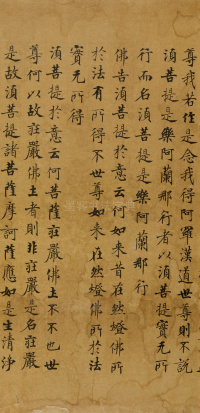 尊我若作是念我得阿羅漢道世尊則不說
須菩提是樂阿蘭那行者以須菩提實无所
行而名須菩提是樂阿蘭那行
佛告須菩提於意云何如來昔在然燈佛所
於法有所得不世尊如來在然燈佛所於法
實无所得
須菩提於意云何菩薩莊嚴佛土不不也世
尊何以故莊嚴佛土者則非莊嚴是名莊嚴
是故須菩提諸菩薩摩訶薩應如是生清淨